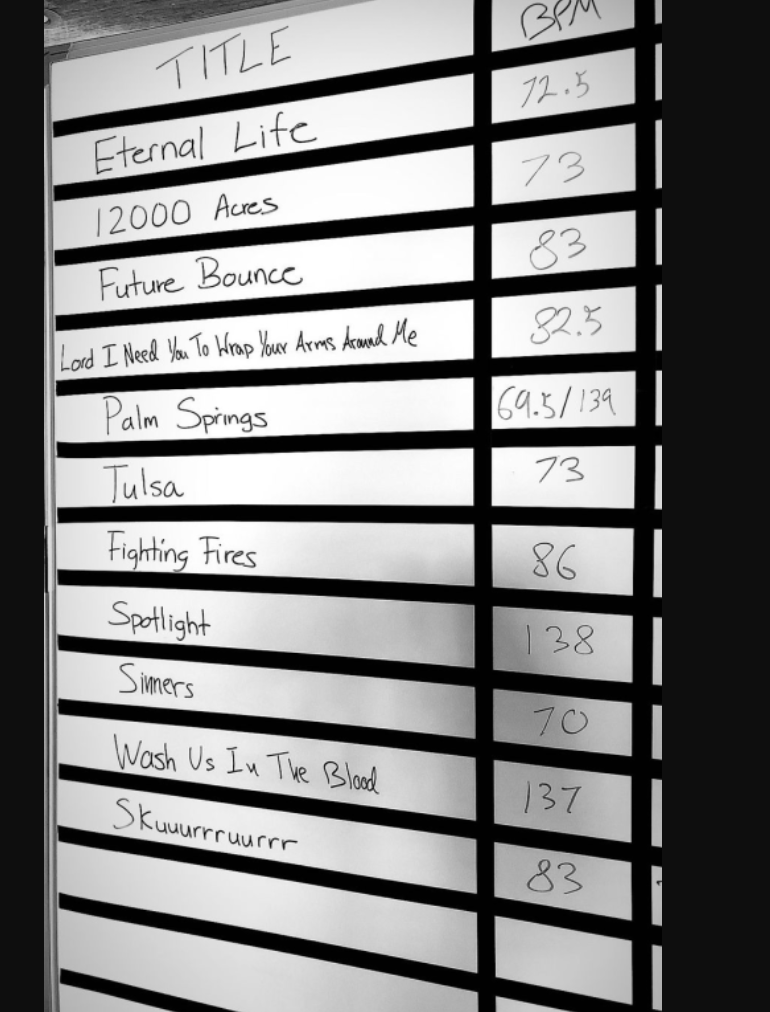 TITLE BPM
Eternal Life 72.5
12000 Acres 73
Future Bounce 83
Lord I Need You To Wrap Your Arms Around Me 82.5
Palm Springs 69.5/139
Tulsa 73
Fighting Fires 86
Spotlight 138
Sinners 70
Wash Us In The Blood 137
Skuuurrruurrr 83